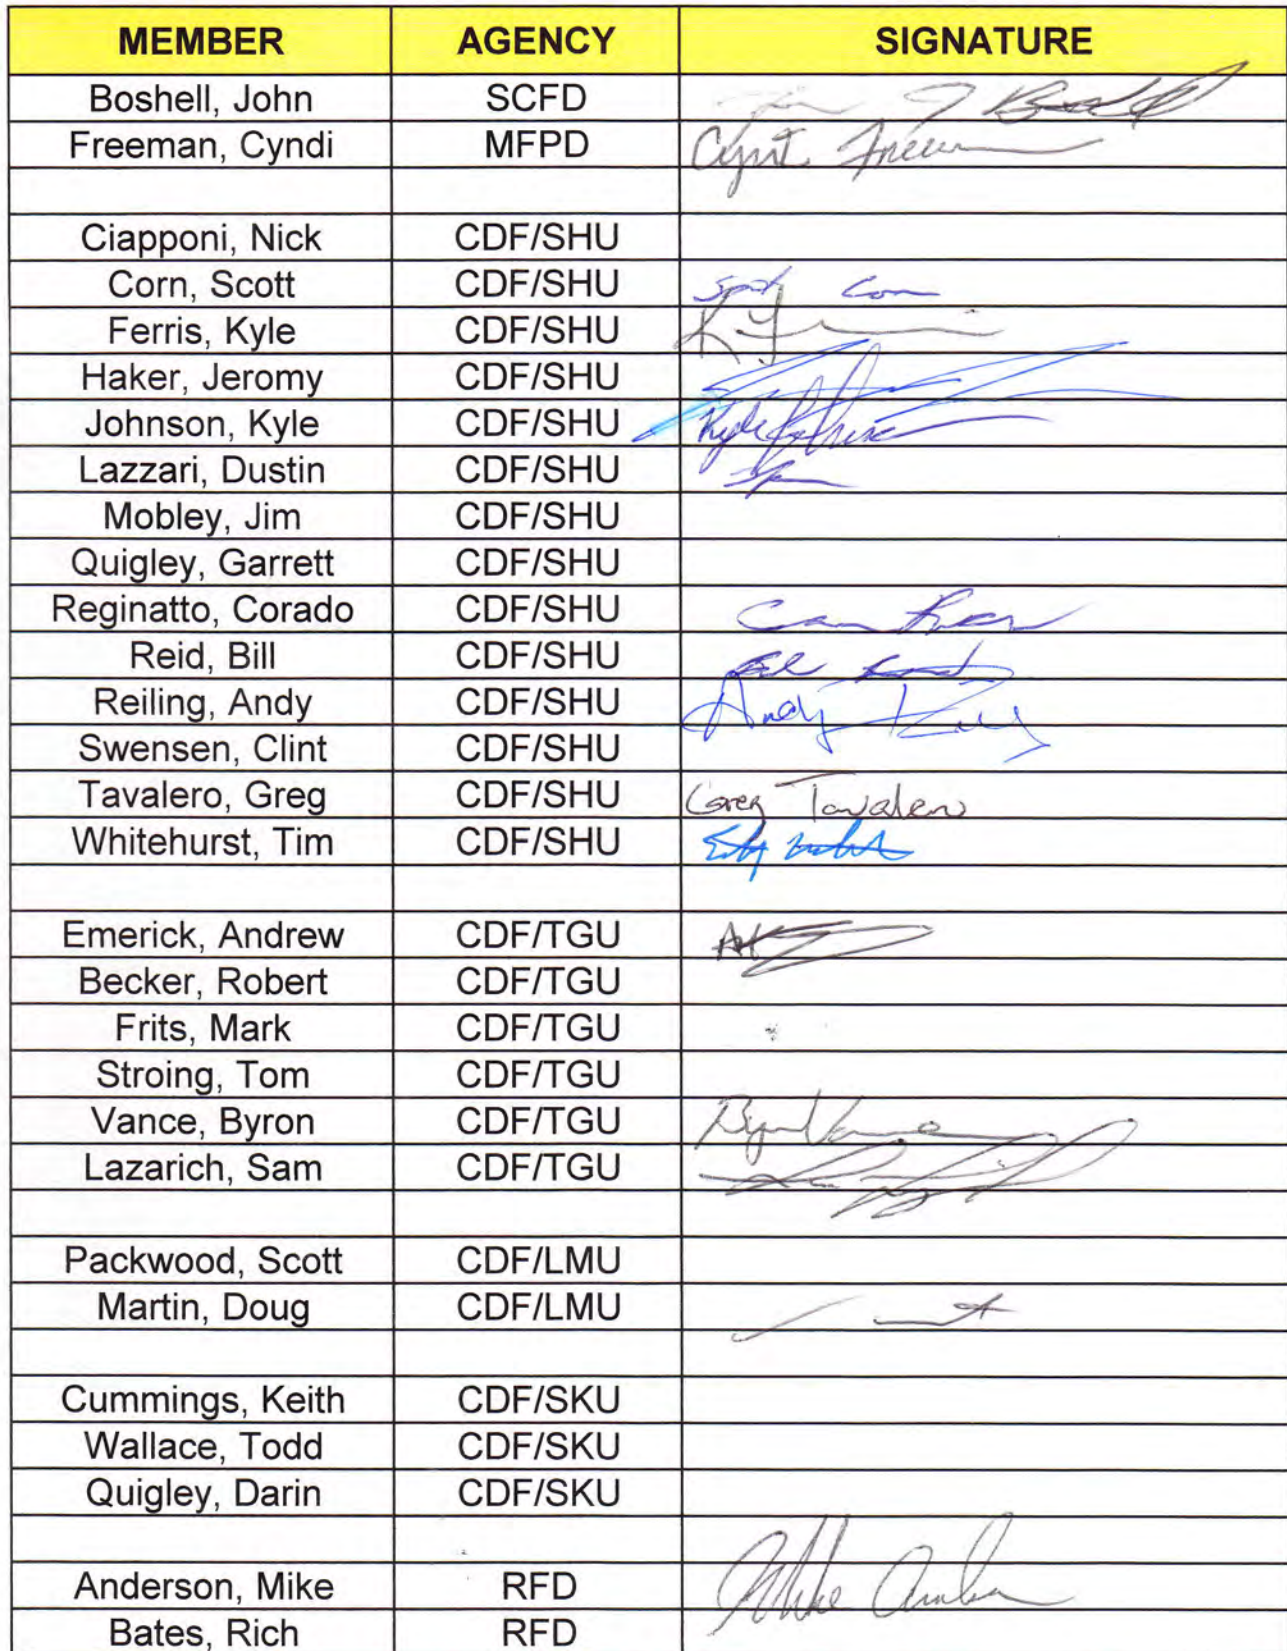 MEMBER AGENCY SIGNATURE
Boshell, John SCFD
Freeman, Cyndi MFPD
Ciapponi, Nick CDF/SHU
Corn, Scott CDF/SHU
Ferris, Kyle CDF/SHU
Haker, Jeromy CDF/SHU
Johnson, Kyle CDF/SHU Kyle
Lazzari, Dustin CDF/SHU
Mobley, Jim CDF/SHU
Quigley, Garrett CDF/SHU
Reginatto, Corado CDF/SHU
Reid, Bill CDF/SHU
Reiling, Andy CDF/SHU Andy
Swensen, Clint CDF/SHU
Tavalero, Greg CDF/SHU Greg Tavalero
Whitehurst, Tim CDF/SHU
Emerick, Andrew CDF/TGU
Becker, Robert CDF/TGU
Frits, Mark CDF/TGU
Stroing, Tom CDF/TGU
Vance, Byron CDF/TGU
Lazarich, Sam CDF/TGU
Packwood, Scott CDF/LMU
Martin, Doug CDF/LMU
Cummings, Keith CDF/SKU
Wallace, Todd CDF/SKU
Quigley, Darin CDF/SKU
Anderson, Mike RFD Mike
Bates, Rich RFD